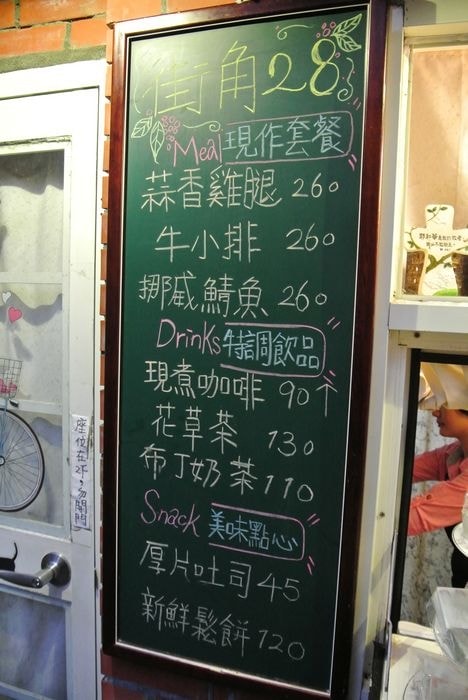 街角28
Meal 現作套餐
蒜香雞腿 260
牛小排 260
挪威鯖魚 260
Drinks 特調飲品
現煮咖啡 90↑
花草茶 130
布丁奶茶 110
Snack 美味點心
厚片吐司 45
新鮮鬆餅 120
座位在2F,勿開門